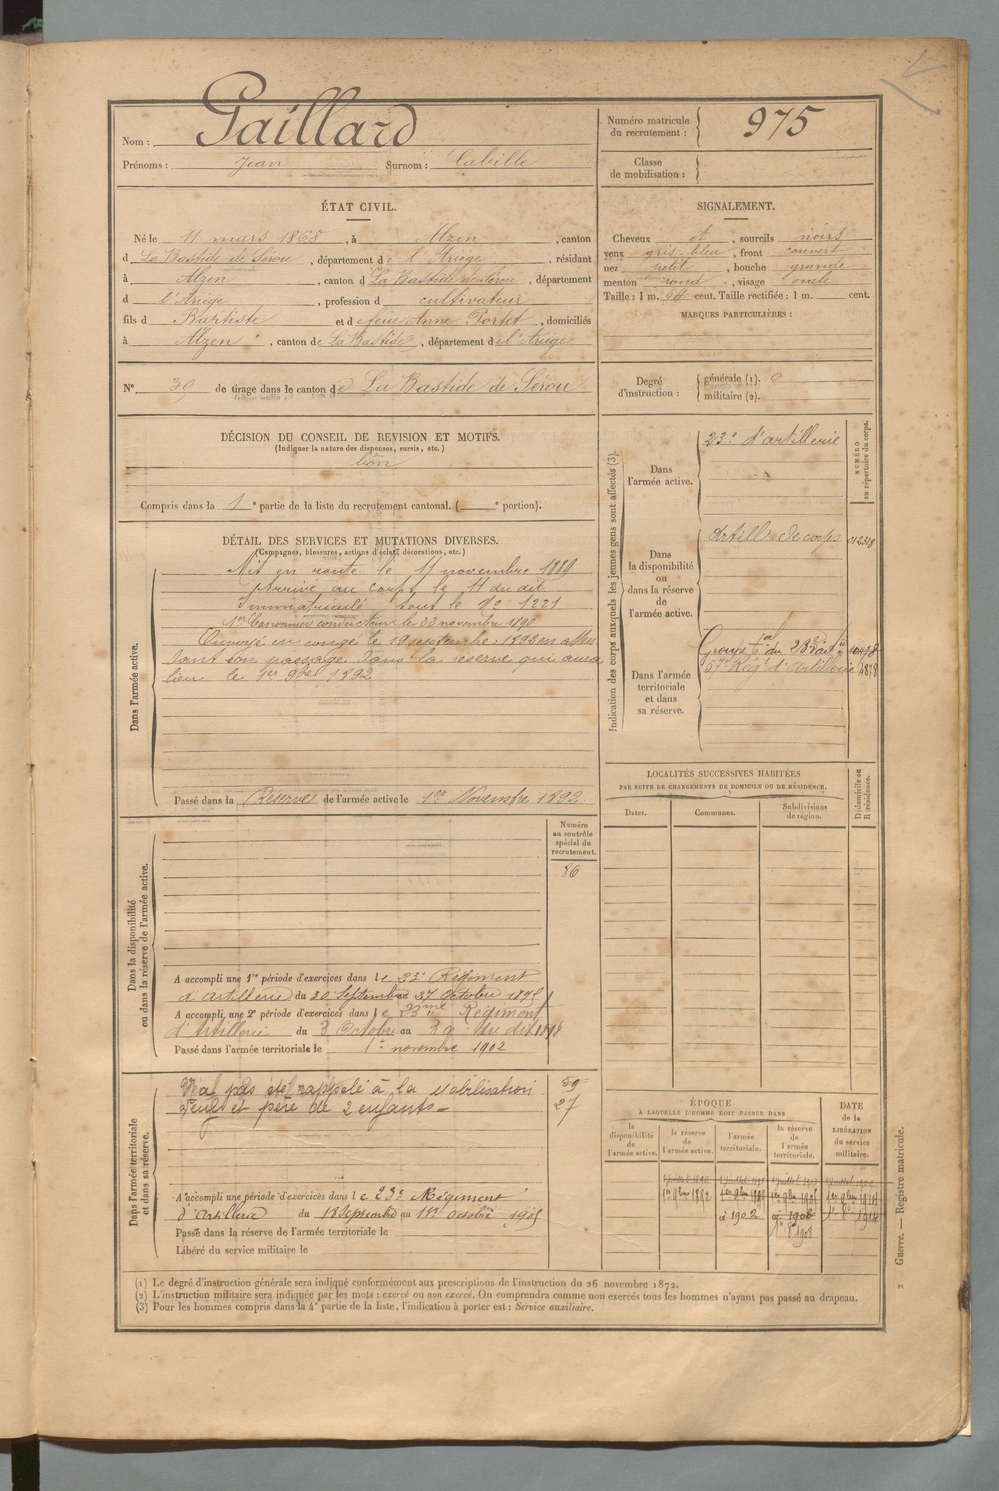 Nom : Gaillard
Prénoms : Jean Surnom :
Numéro matricule
du recrutement : 975
Classe
de mobilisation :
ÉTAT CIVIL.
Né le 11 mars 1868, à Alzen, canton
d La Bastide de Sérou, département de l'Ariège, résidant
à Alzen, canton d La Bastide de Sérou, département
d l'Ariège, profession d cultivateur
fils d Baptiste et d feue Anne Portet, domiciliés
à Alzen, canton de La Bastide, département de l'Ariège
N° 39 de tirage dans le canton de La Bastide de Sérou
SIGNALEMENT.
Cheveux et, sourcils noirs
yeux gris-bleu, front couvert
nez petit, bouche grande
menton rond, visage ovale
Taille : 1 m. cent. Taille rectifiée : 1 m. cent.
MARQUES PARTICULIÈRES :
Degré
d'instruction :
générale (1).
militaire (2).
DÉCISION DU CONSEIL DE REVISION ET MOTIFS.
(Indiquer la nature des dispenses, sursis, etc.)
bon
Compris dans la 1e partie de la liste du recrutement cantonal. ( e portion).
DÉTAIL DES SERVICES ET MUTATIONS DIVERSES.
(Campagnes, blessures, actions d'éclat, décorations, etc.)
Dans l'armée active.
Mis en route le 11 novembre 1889
Arrivé au corps le 11 du dit
Immatriculé sous le N° 1221
1er Canonnier conducteur le 22 novembre 1890
Envoyé en congé le 19 septembre 1892 en atten
dant son passage dans la réserve qui aura
lieu le 1er 9bre 1892
Passé dans la Réserve de l'armée active le 1er Novembre 1892
Indication des corps auxquels les jeunes gens sont affectés (3).
NUMÉRO
au répertoire du corps.
Dans
l'armée active.
23e d'artillerie
Dans
la disponibilité
ou
dans la réserve
de
l'armée active.
Artill. de corps
Dans l'armée
territoriale
et dans
sa réserve.
Groupe tal du 23e
57e Régt d'artillerie
LOCALITÉS SUCCESSIVES HABITÉES
PAR SUITE DE CHANGEMENTS DE DOMICILE OU DE RÉSIDENCE.
Dates.
Communes.
Subdivisions
de région.
D domicile ou
R résidence.
Dans la disponibilité
ou dans la réserve de l'armée active.
Numéro
au contrôle
spécial du
recrutement.
86
A accompli une 1re période d'exercices dans le 23e Régiment
d'artillerie du 30 Septembre au 27 Octobre 1895
A accompli une 2e période d'exercices dans le 23me Régiment
d'Artillerie du 3 Octobre au 30 du dit 1898
Passé dans l'armée territoriale le 1er novembre 1902
Dans l'armée territoriale
et dans sa réserve.
N'a pas été rappelé à la Mobilisation
Veuf et père de 2 enfants
59
27
A accompli une période d'exercices dans le 23e Régiment
d'Artillerie du 18 Septembre au 1er octobre 1905
Passé dans la réserve de l'armée territoriale le
Libéré du service militaire le
ÉPOQUE
À LAQUELLE L'HOMME DOIT PASSER DANS
la
disponibilité
de
l'armée active.
la réserve
de
l'armée active.
l'armée
territoriale.
la réserve
de
l'armée
territoriale.
DATE
de la
LIBÉRATION
du service
militaire.
1er 9bre 1892
1902
1908
1914
(1) Le degré d'instruction générale sera indiqué conformément aux prescriptions de l'instruction du 26 novembre 1872.
(2) L'instruction militaire sera indiquée par les mots : exercé ou non exercé. On comprendra comme non exercés tous les hommes n'ayant pas passé au drapeau.
(3) Pour les hommes compris dans la 4e partie de la liste, l'indication à porter est : Service auxiliaire.
2 Guerre. — Registre matricule.